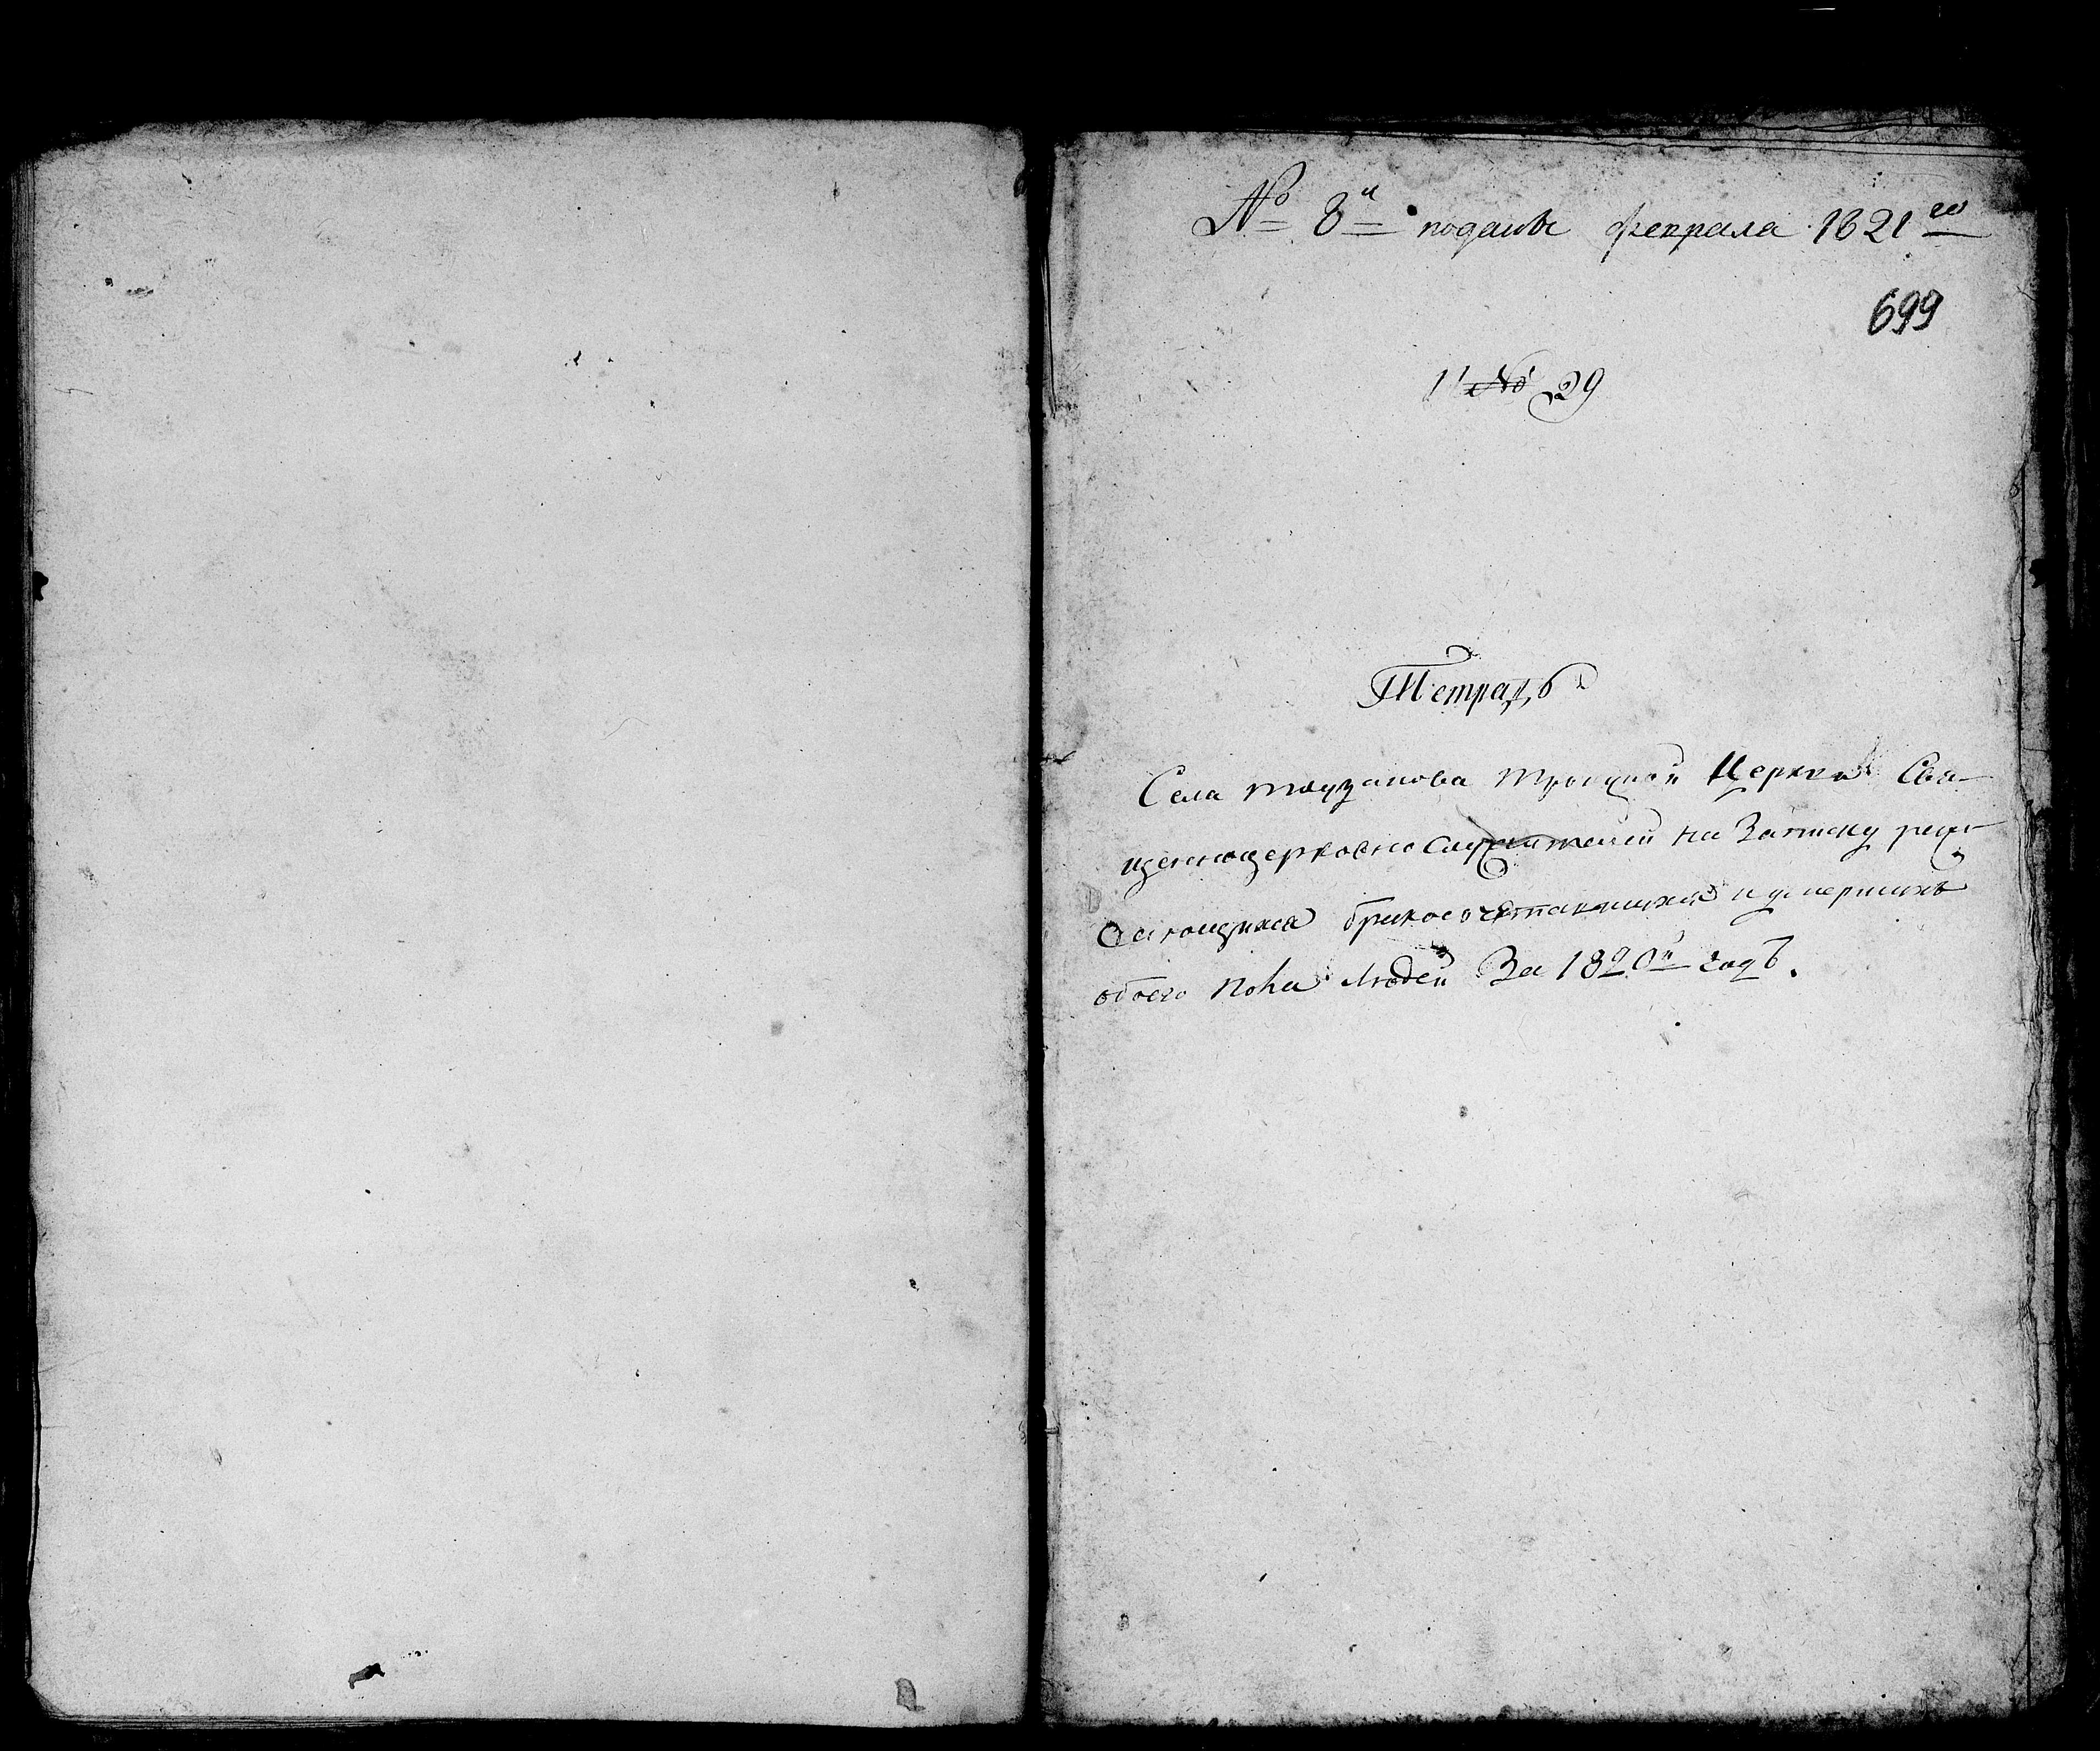 № 8й подана февраля 1821го
699
№ 29
Тетрадь
Села Троицкой Церкви Свя-
щенноцерковнослужителей на Записку раж-
дающихся бракосочетавшихся и умерших
обоего пола людей За 1820й годъ.